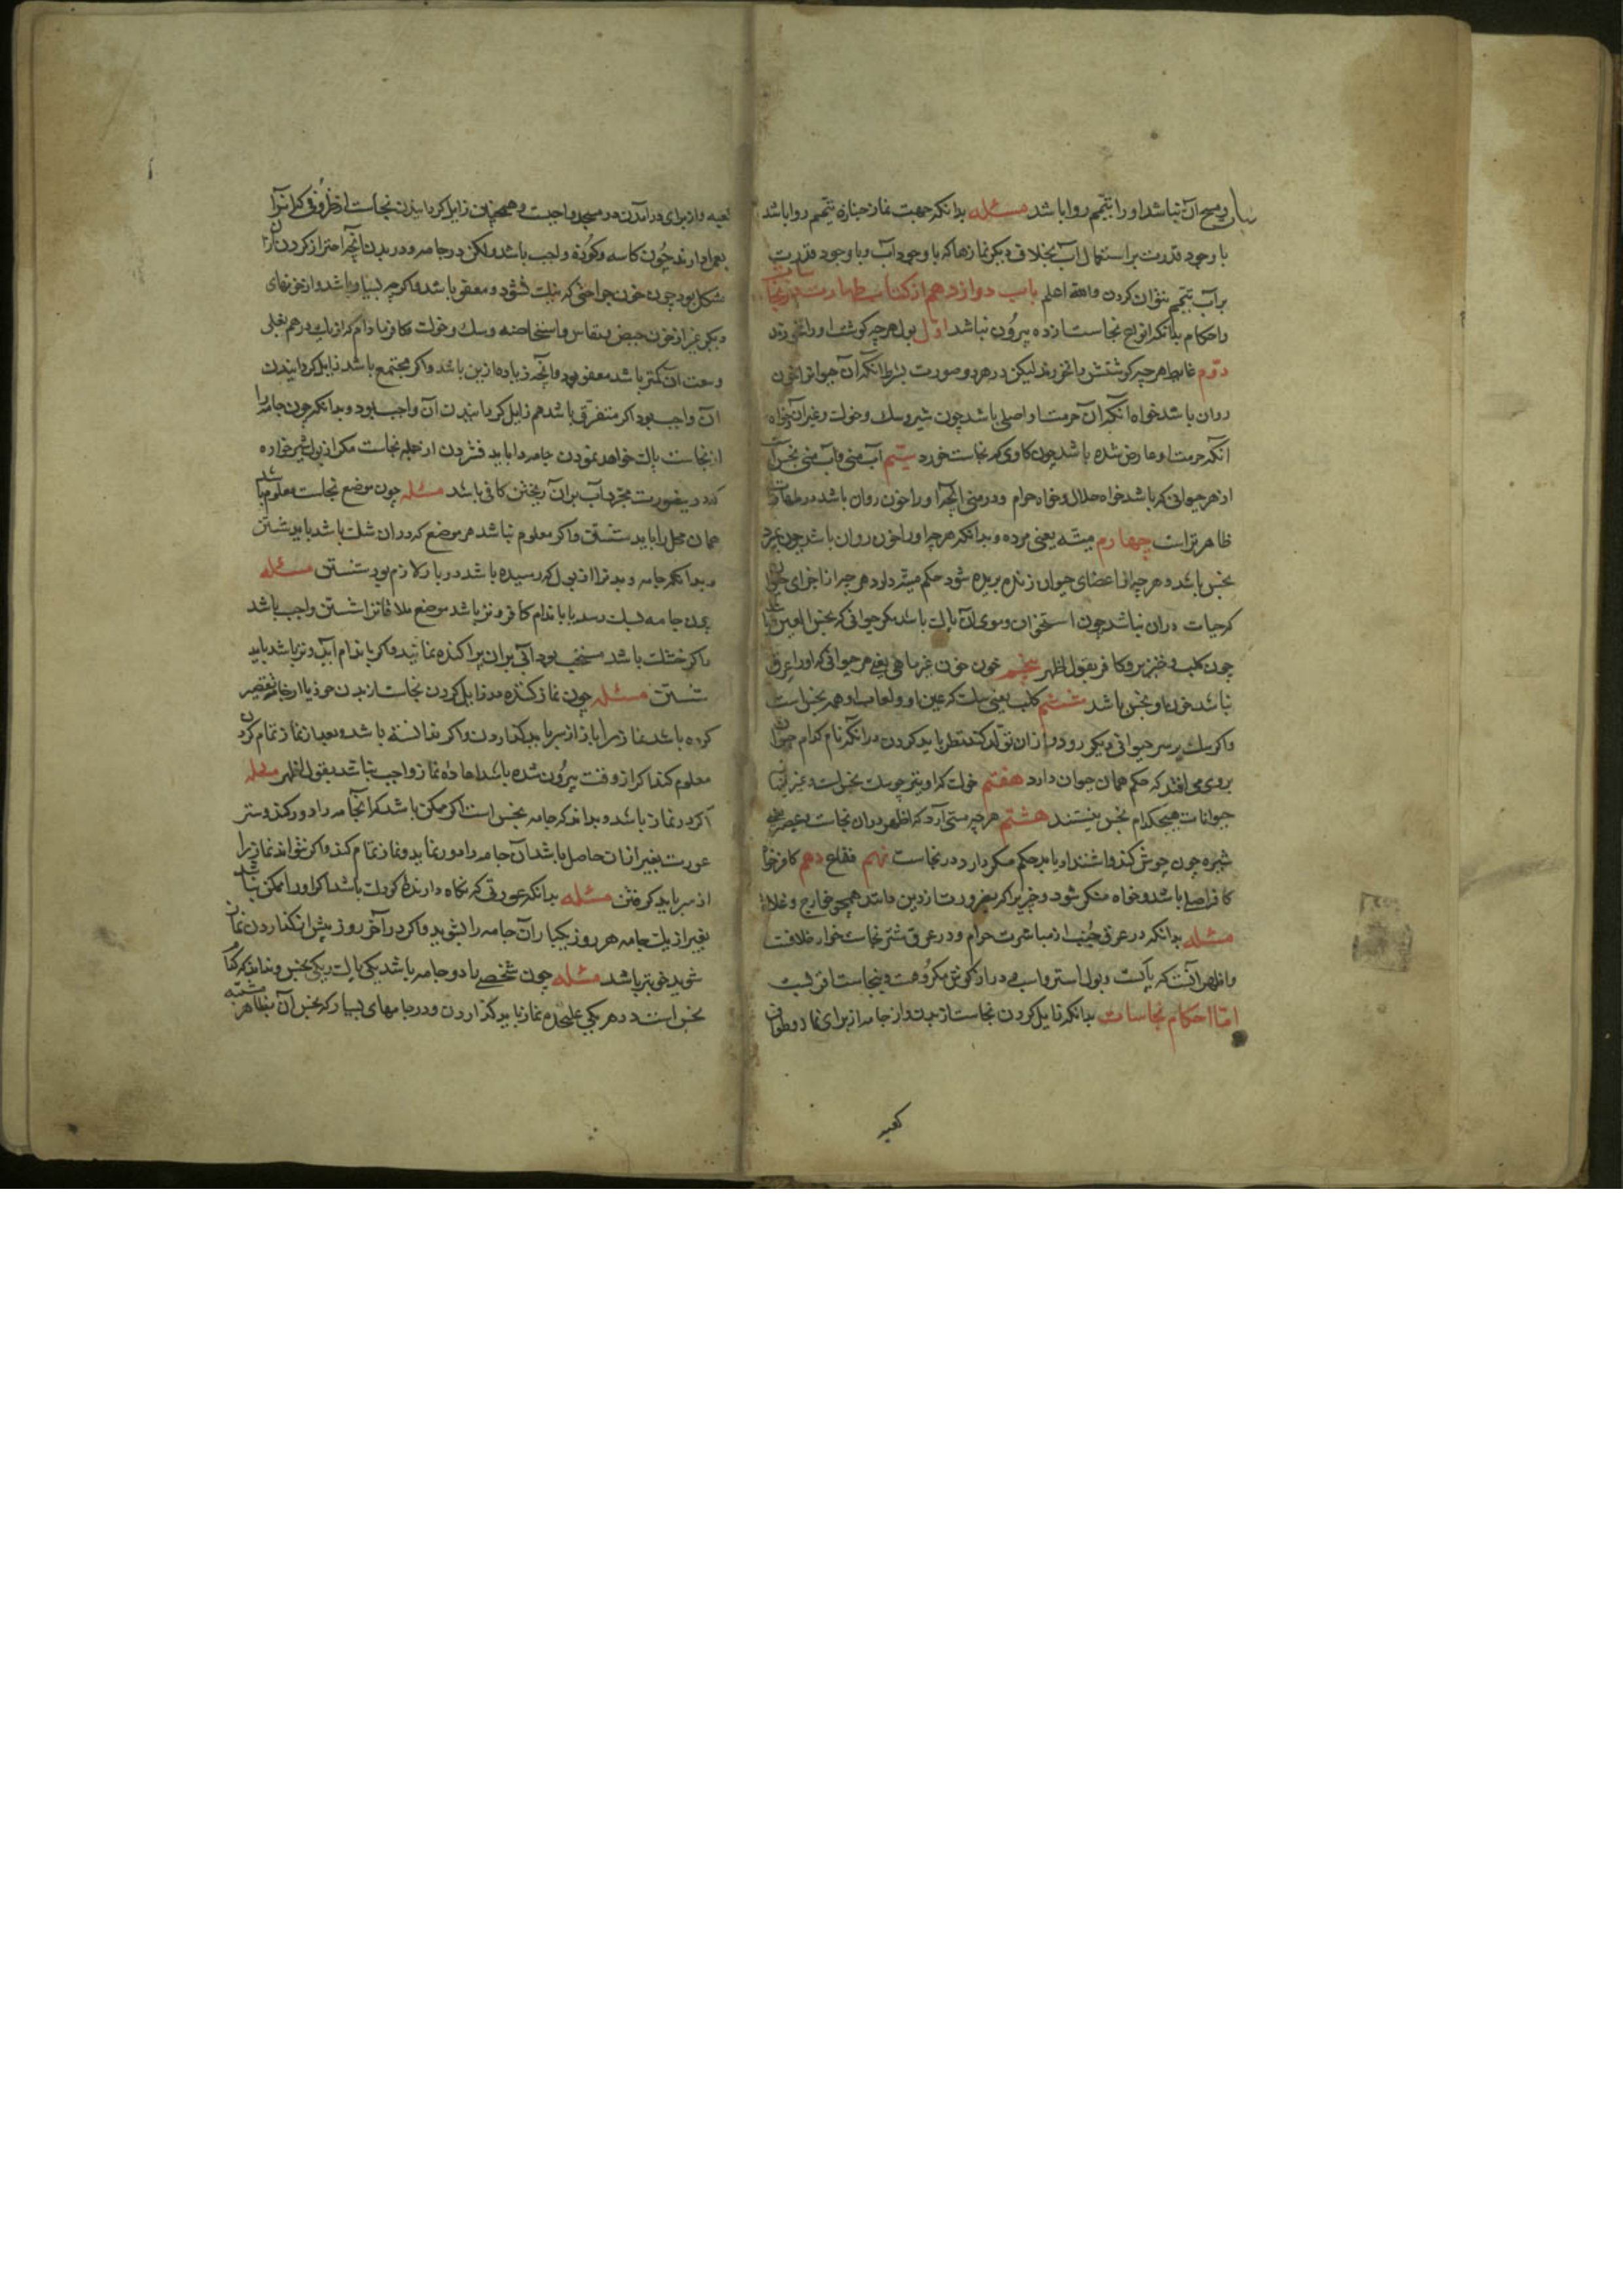 مبیح آن نباشد او را تیمم روا باشد مسئله بدانکه جهت نماز جنازه تیمم روا باشد
با وجود قدرت بر استعمال آب بخلاف دیکر نمازها که با وجود آب و با وجود قدرت
بر آب تیمم نتوان کردن والله اعلم باب دوازدهم از کتاب طهارت در نجاسات
واحکام بدانکه انواع نجاسات از ده بیرون نباشد اول بول هر چه کوشت او را نخورند
دوم غایط هر چه کوشتش را نخورند لیکن در هر دو صورت بشرط آنکه آن حیوانرا خون
روان باشد خواه آنکه آن حرمت او اصلی باشد چون شیر و سک و خوک و غیر آن خواه
آنکه حرمت او عارض شده باشد چون کاوی که نجاست خورد سیم آب منی و آب منی نجس است
از هر حیوانی که باشد خواه حلال و خواه حرام و در منی آنچه او را خون روان باشد
ظاهرتر است چهارم میته یعنی مرده و بدانکه هر چه او را خون روان باشد چون بمیرد
نجس باشد و هر چه از اعضای حیوان زنده بریده شود حکم میته دارد هر چه از اجزای حیوان
که حیات دران نباشد چون استخوان و موی آن پاک باشد مکر حیوانی که نجس العین باشد
چون کلب و خنزیر و کافر بقول اظهر پنجم خون خون غیر ماهی یعنی هر حیوانی که او را عرق
نباشد خون او نجس باشد ششم کلب یعنی سک که عین او و لعاب او همه نجس است
واکر سک بر سر حیوانی دیکر رود و از ان تولد کند نظر باید کردن در آنکه نام کدام حیوان
بروی می افتد که حکم همان حیوان دارد هفتم خوک که او نیز چو سک نجس است و غیر اینها
حیوانات هیچکدام نجس نیستند هشتم هر چه مستی آرد که اظهر دران نجاست و عصیر یعنی
شیره چون جوش کند و اشتداد یابد حکم مسکر دارد در نجاست نهم فقاع دهم کافر خواه
کافر اصلی باشد و خواه منکر شود چیزیرا که بضرورت از دین دانند همچو خوارج و غلاة
مسئله بدانکه در عرق جنب از مباشرت حرام و در عرق شتر نجاست خوار خلافست
و اظهر آنست که پاکست و بول استر و اسب و دراز کوش مکروهست و بنجاست قریبست
اما احکام نجاسات بدانکه زایل کردن نجاست از بدن و از جامه از برای نماز و طواف
کعبه
کعبه و از برای در آمدن در مسجد واجبست و همچنان زایل کردانیدن نجاست از ظروفی که آنرا
بعمل دارند چون کاسه و کوزه واجب باشد ولکن در جامه و در بدن آنچه احتراز کردن ازان
مشکل بود چون خون جراحتی که نیک نشود معفو باشد واکرچه بسیار باشد و از خونهای
دیکر غیر از خون حیض و نفاس و استحاضه و سک و خوک و کافر مادام که از یک درهم بغلی
وسعت آن کمتر باشد معفو بود و آنچه زیاده ازین باشد واکر مجتمع باشد زایل کردانیدن
آن واجب بود اکر متفرق باشد هم زایل کردانیدن آن واجب بود و بدانکه چون جامه را
از نجاست پاک خواهد نمودن جامه را باید فشردن از جمله نجاست مکر از بول شیر خواره
که درینصورت مجرد آب بران ریختن کافی باشد مسئله چون موضع نجاست معلوم باشد
همان محل را باید شستن واکر معلوم نباشد هر موضع که دران شک باشد باید شستن
و بدانکه جامه و بدنرا از بول که رسیده باشد دو بار لازم بود شستن مسئله
چون جامه بسک رسد یا باندام کافر و تر باشد موضع ملاقاترا شستن واجب باشد
واکر خشک باشد مستحب بود آبی بران پراکنده نمایند واکر باندام آید و تر باشد باید
شستن مسئله چون نماز کننده در زایل کردن نجاست از بدن خود یا از جامه تقصیر
کرده باشد نماز را باز از سر باید کذاردن واکر ندانسته باشد و بعد از نماز تمام کردن
معلوم کند اکر از وقت بیرون شده باشد اعاده نماز واجب نباشد بقول اظهر مسئله
اکر در نماز باشد و بداند که جامه نجس است اکر ممکن باشد که آنجامه را دور کند و ستر
عورت بغیر از ان حاصل باشد آن جامه را دور نماید و نماز تمام کند واکر نتواند نماز را
از سر باید کرفتن مسئله بدانکه عورتی که نکاه دارنده کودک باشد اکر او را ممکن نباشد
بغیر از یک جامه هر روز یکبار آن جامه را بشوید واکر در آخر روز پیش از کذاردن نماز
شوید خوبتر باشد مسئله چون شخصی را دو جامه باشد یکی پاک و یکی نجس و نداند که کدام
نجس است در هر یکی علیحده نماز باید کذاردن و در جامهای بسیار که نجس آن بطاهر مشتبه